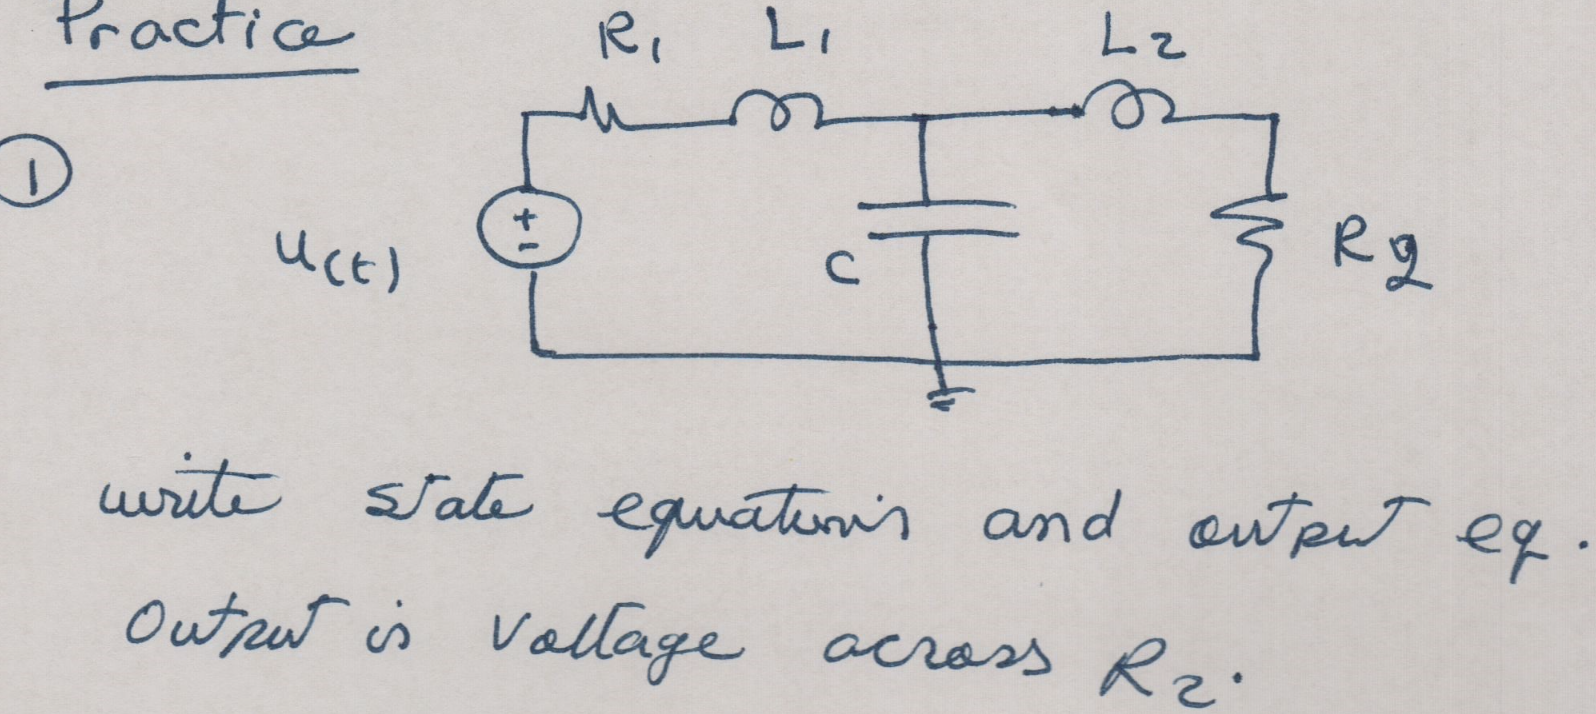 Practice
R1 L1 L2
1
u(t)
+
-
C
R2
write state equations and output eq.
Output is Voltage across R2.